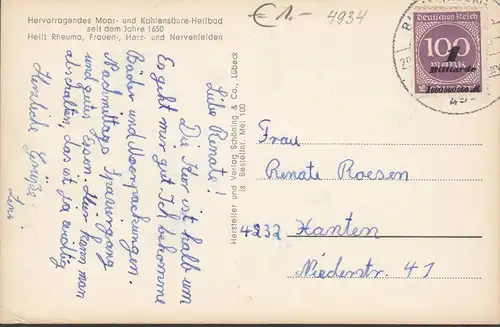 Hervorragendes Moor- und Kohlensäure-Heilbad
seit dem Jahre 1650
Heilt Rheuma, Frauen-, Herz- und Nervenleiden
€ 1.- 4934
Deutsches Reich
100
MARK
1
Milliarde
Liebe Renate!
Die Kur ist halb um
Es geht mir gut. Ich bekomme
Bäder und Moorpackungen.
Nachmittags Spaziergang
und gutes Essen. Hier kann man
abschalten, das ist ja wichtig
Herzliche Grüße
Hersteller und Verlag Schöning & Co., Lübeck
Bestellnr. Mei 100
Frau
Renate Roesen
4232 Xanten
Niederstr. 41